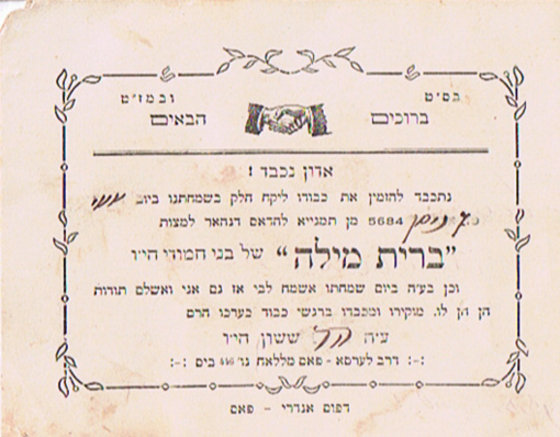 בס״ט ובמז״ט
ברוכים הבאים
אדון נכבד!
נתכבד להזמין את כבודו ליקח חלק בשמחתנו ביום
ניסן 5684 מן תמנייא להדאם דנהאר למצות
״ברית מילה״ של בני חמודי הי״ו
וכן בע״ה ביום שמחתו אשמח לבי אז גם אני ואשלם תודות
הן הן לו. מוקירו ומכבדו ברגשי כבוד כערכו הרם
ע״ה ששון הי״ו
:-: דרב לערסא - פאס מללאח נו׳ 446 בים :-:
דפוס אנדרי - פאס